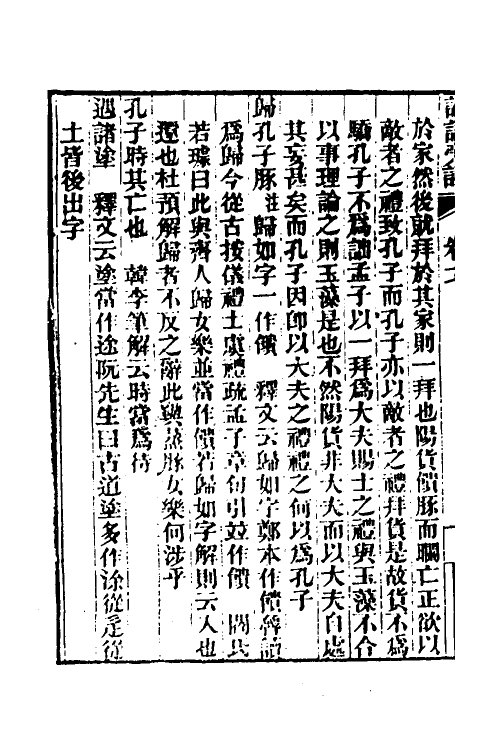 於家然後就拜於其家則一拜也陽貨饋豚而矙亡正欲以
敵者之禮致孔子而孔子亦以敵者之禮拜貨是故貨不爲
驕孔子不爲詘孟子以一拜爲大夫賜士之禮與玉藻不合
以事理論之則玉藻是也不然陽貨非大夫而以大夫自處
其妄甚矣而孔子因卽以大夫之禮禮之何以爲孔子
歸孔子豚註歸如字一作饋 釋文云歸如字鄭本作饋魯讀
爲歸今從古按儀禮士虞禮疏孟子章句引竝作饋 閻氏
若璩曰此與齊人歸女樂並當作饋若歸如字解則云入也
還也杜預解歸者不反之辭此與蒸豚女樂何涉乎
孔子時其亡也 韓李筆解云時當爲待
遇諸塗 釋文云塗當作途阮先生曰古道塗多作涂從辵從
土皆後出字